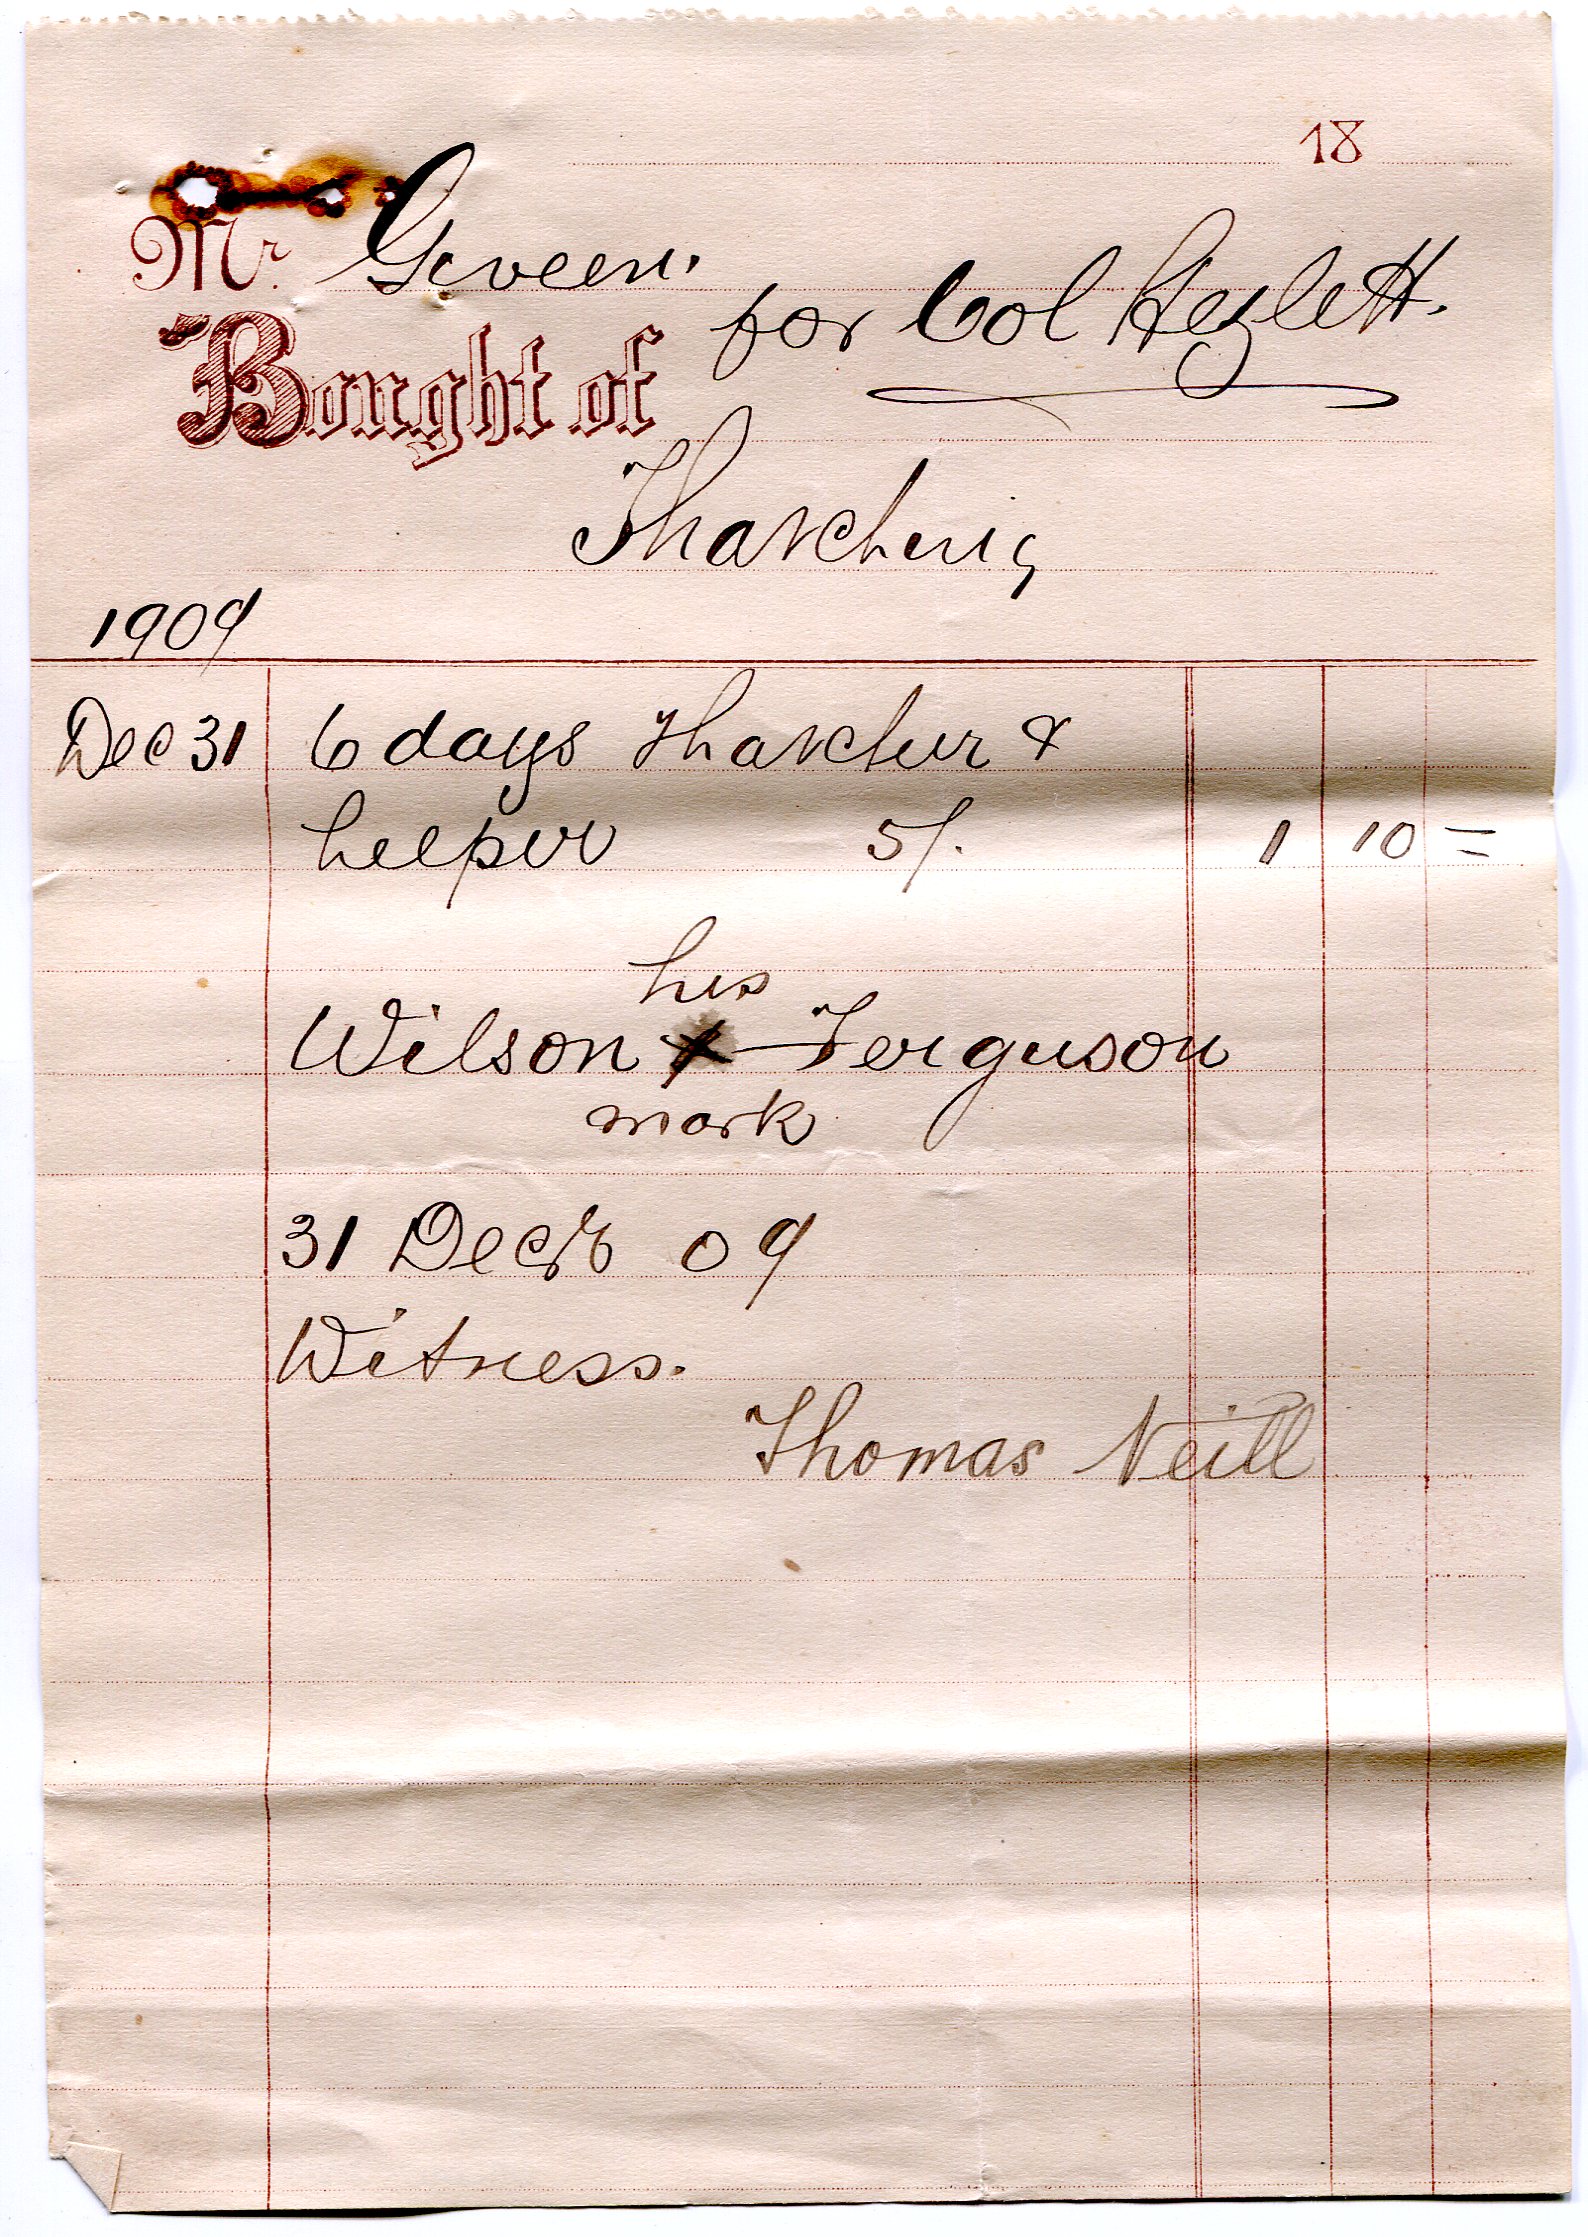 18
Mr. Geveen.
for Col Hezlett.
Bought of
Thatching
1909
Dec 31 6 days thatcher &
helper 5/. 1 10 =
his
Wilson x Ferguson
mark
31 Decr 09
Witness.
Thomas Neill